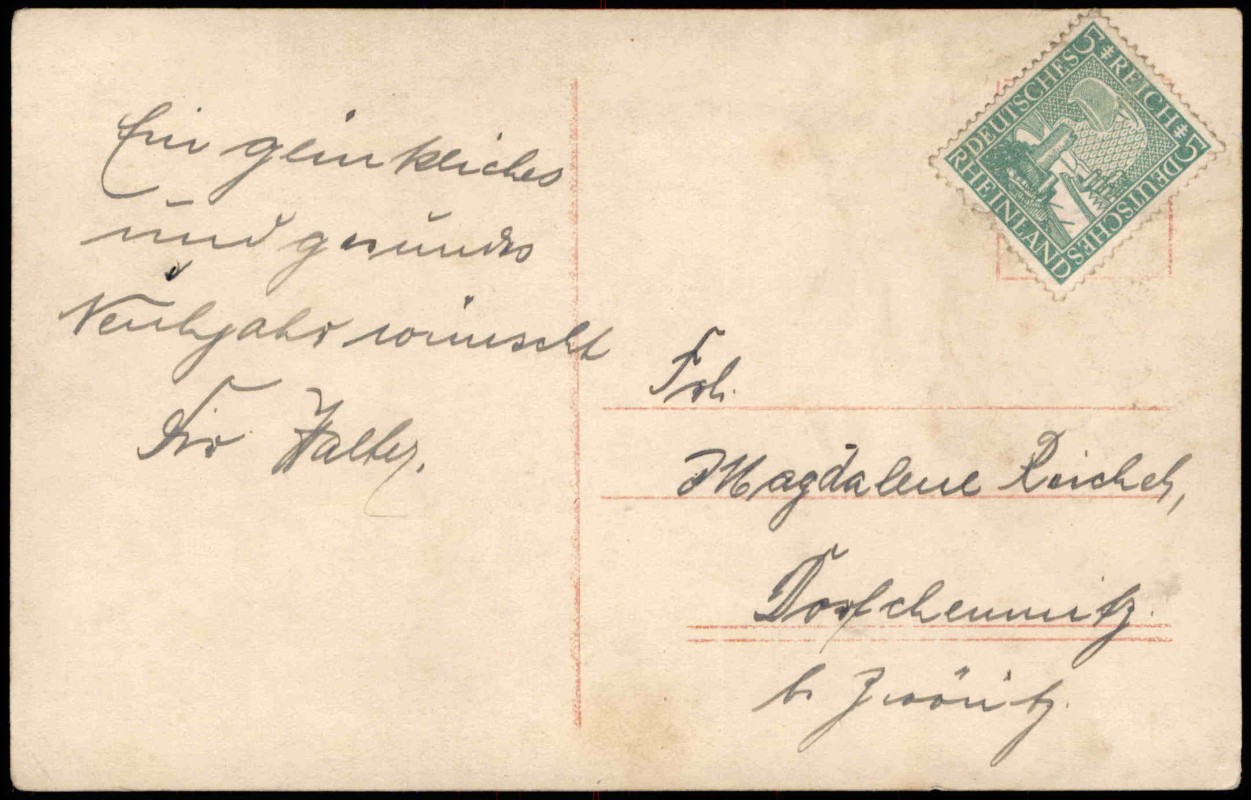 Ein glückliches
und gesundes
Neuhjahr wünscht
Dir Walter.
DEUTSCHES REICH
5 5
DEUTSCHES
RHEINLAND
Frl.
Magdalene Reichel,
Dorfchemnitz
b. Zwönitz.